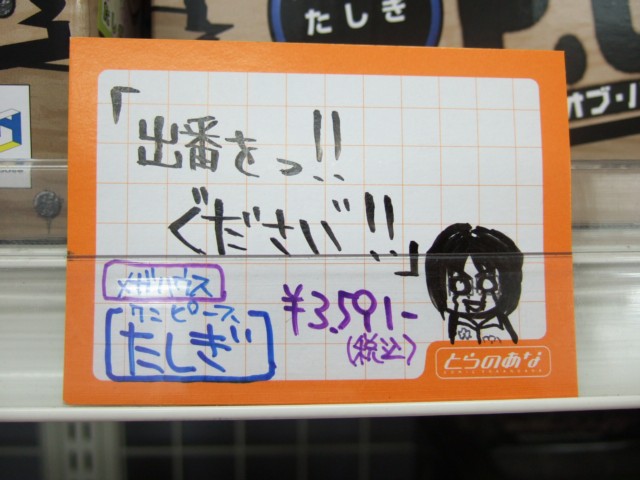 たしぎ
P.O
オブ・パ
「出番をっ!!
ぐださい゛!!」
メガハウス
ワンピース
たしぎ
¥3,591-
(税込)
とらのあな